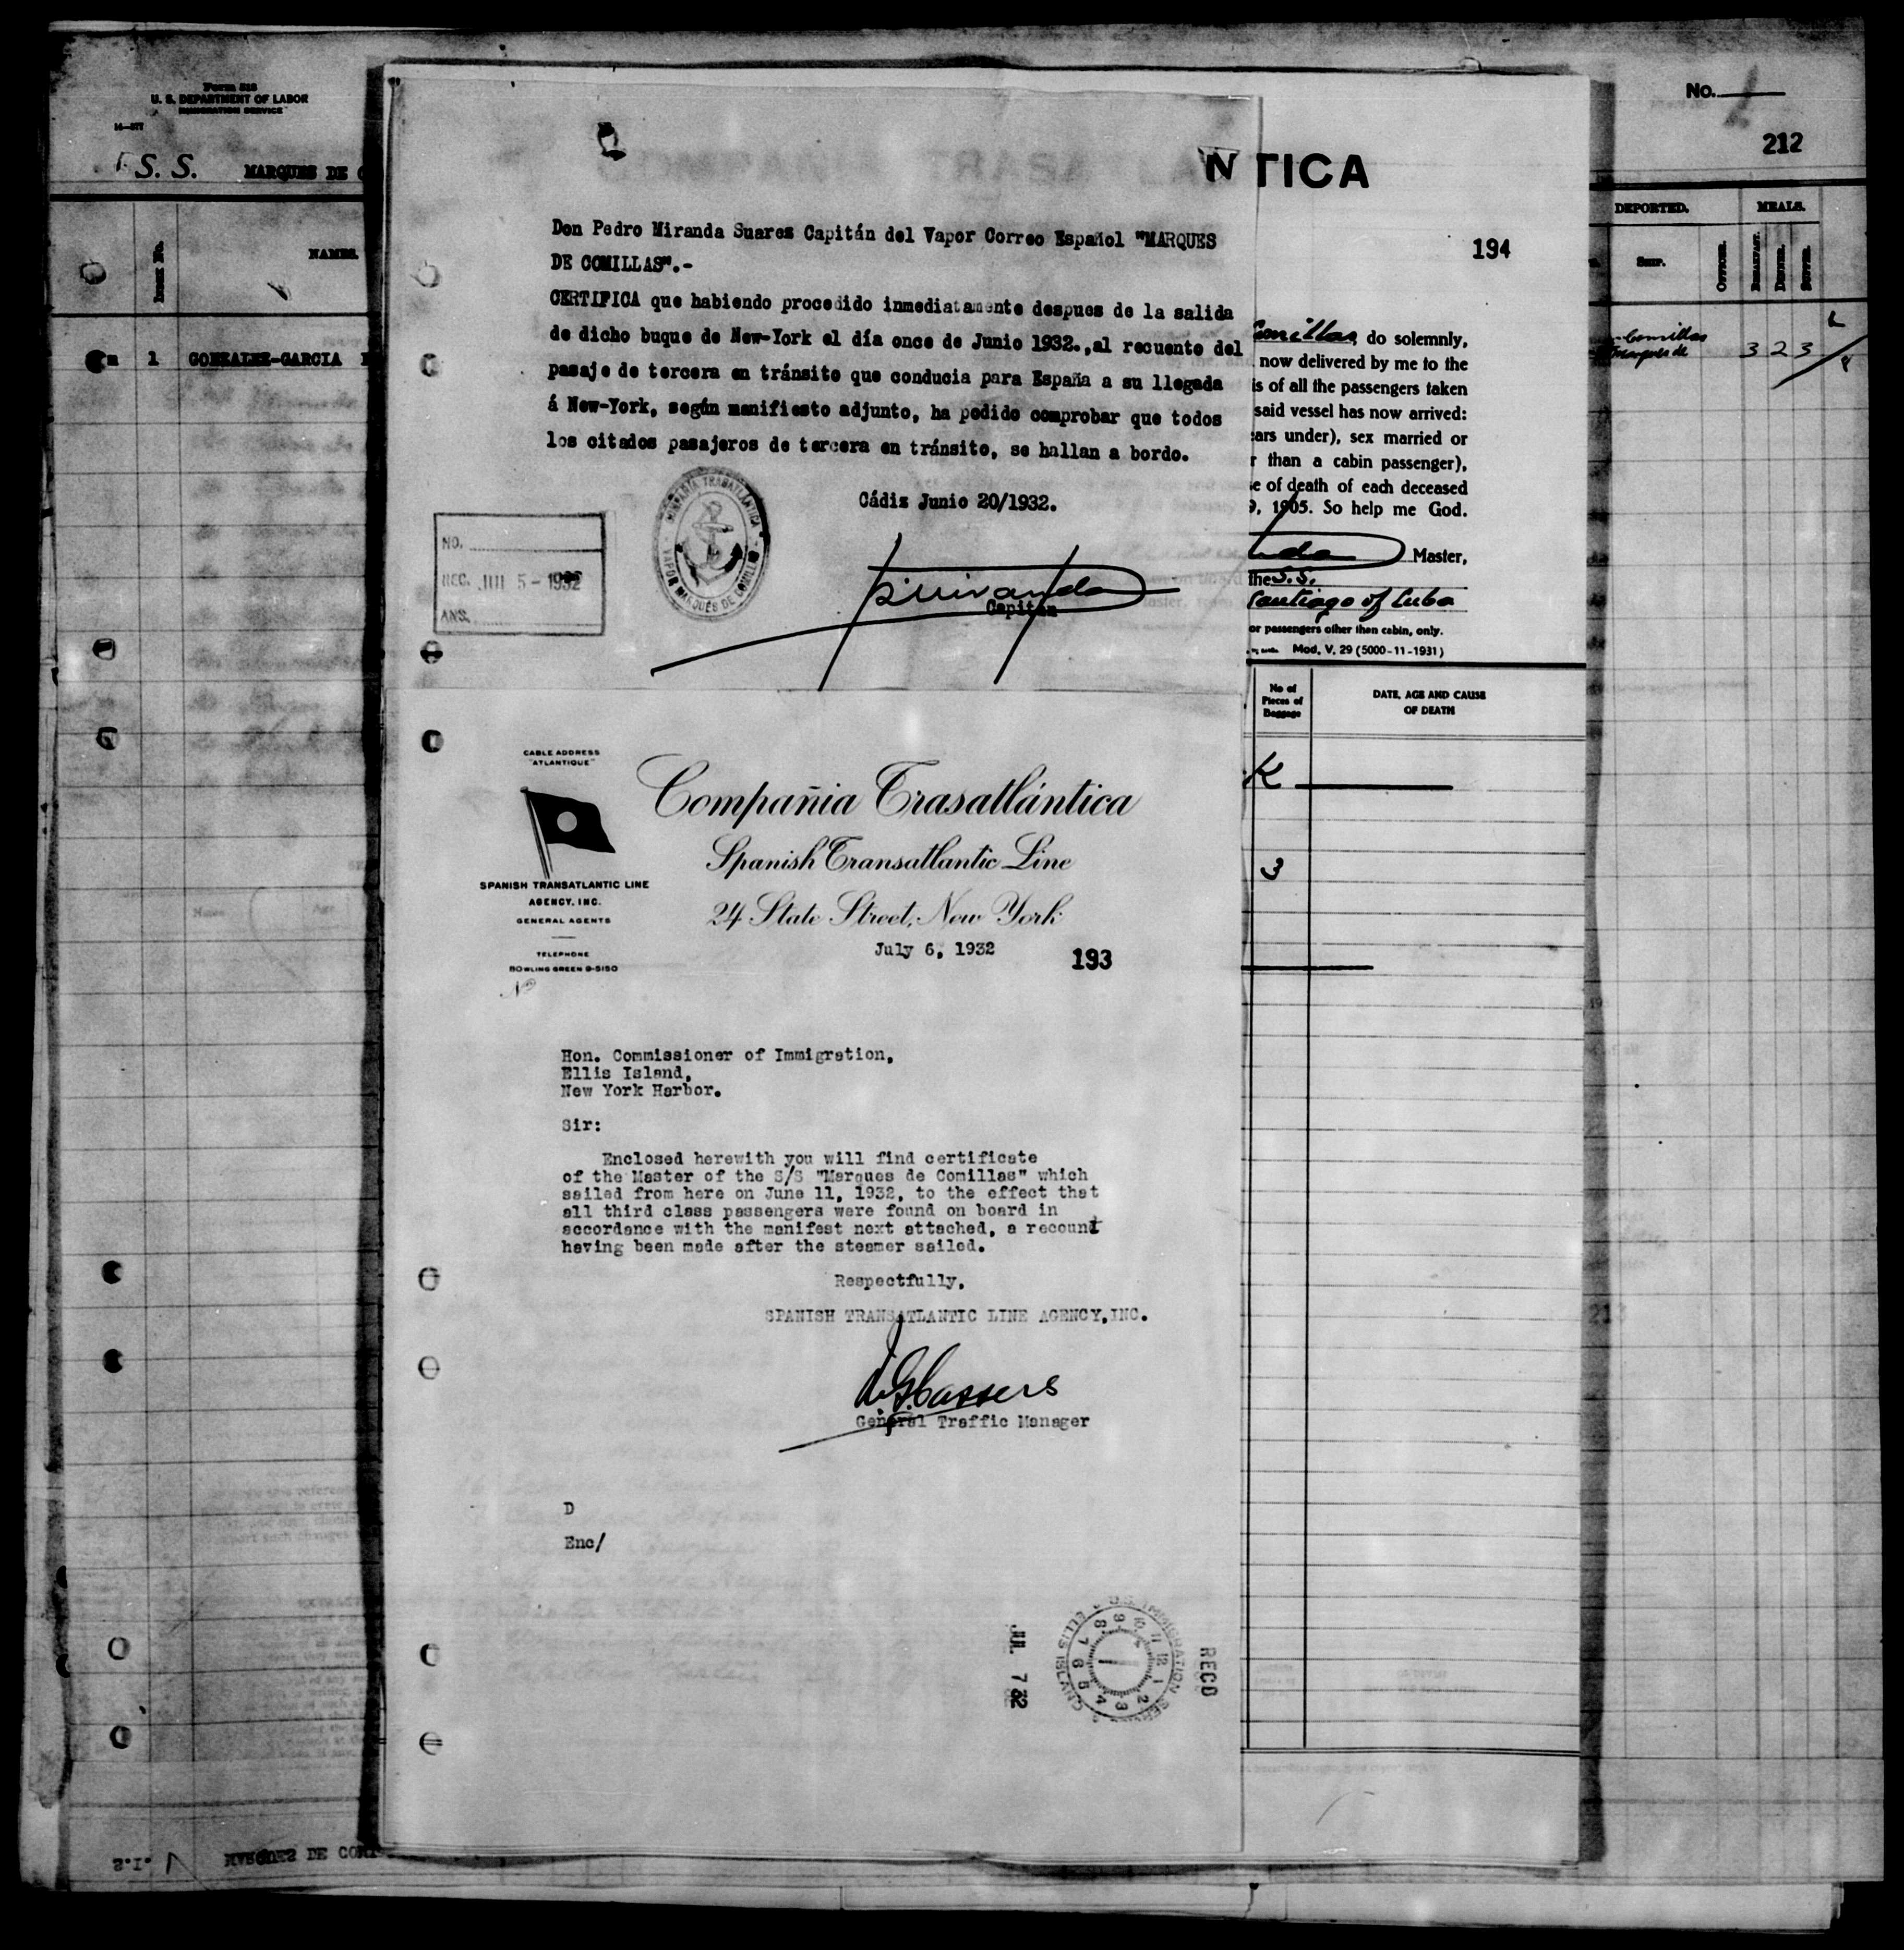 Form 518
U. S. DEPARTMENT OF LABOR
IMMIGRATION SERVICE
14—577
S. S. MARQUES DE C
Index No.
NAMES.
1 GONZALEZ-GARCIA
No.
212
DEPORTED.
MEALS.
SHIP.
OFFICER.
BREAKFAST.
DINNER.
SUPPER.
Comillas
Marques de
3 2 3
NTICA
194
Comillas, do solemnly,
now delivered by me to the
is of all the passengers taken
said vessel has now arrived:
ears under), sex married or
r than a cabin passenger),
e of death of each deceased
9, 1905. So help me God.
Master,
the S.S.
Santiago of Cuba
or passengers other than cabin, only.
Mod. V. 29 (5000-11-1931)
No of
Pieces of
Baggage
DATE, AGE AND CAUSE
OF DEATH
K
3
Don Pedro Miranda Suarez Capitán del Vapor Correo Español "MARQUES
DE COMILLAS".-
CERTIFICA que habiendo procedido inmediatamente despues de la salida
de dicho buque de New-York el día once de Junio 1932.,al recuento del
pasaje de tercera en tránsito que conducia para España a su llegada
á New-York, según manifiesto adjunto, ha podido comprobar que todos
los citados pasajeros de tercera en tránsito, se hallan a bordo.
Cádiz Junio 20/1932.
COMPAÑIA TRASATLÁNTICA
VAPOR MARQUÉS DE COMILLAS
NO.
REC. JUL 5 - 1932
ANS.
PMiranda
Capitán
CABLE ADDRESS
"ATLANTIQUE"
Compañia Trasatlántica
Spanish Transatlantic Line
24 State Street, New York
SPANISH TRANSATLANTIC LINE
AGENCY, INC.
GENERAL AGENTS
TELEPHONE
BOWLING GREEN 9-5150
Nº
July 6, 1932
193
Hon. Commissioner of Immigration,
Ellis Island,
New York Harbor.
Sir:
Enclosed herewith you will find certificate
of the Master of the S/S "Marques de Comillas" which
sailed from here on June 11, 1932, to the effect that
all third class passengers were found on board in
accordance with the manifest next attached, a recount
having been made after the steamer sailed.
Respectfully,
SPANISH TRANSATLANTIC LINE AGENCY,INC.
General Traffic Manager
D
Enc/
JUL 7 32
U.S. IMMIGRATION SERVICE ELLIS ISLAND
RECD
MARQUES DE COMI